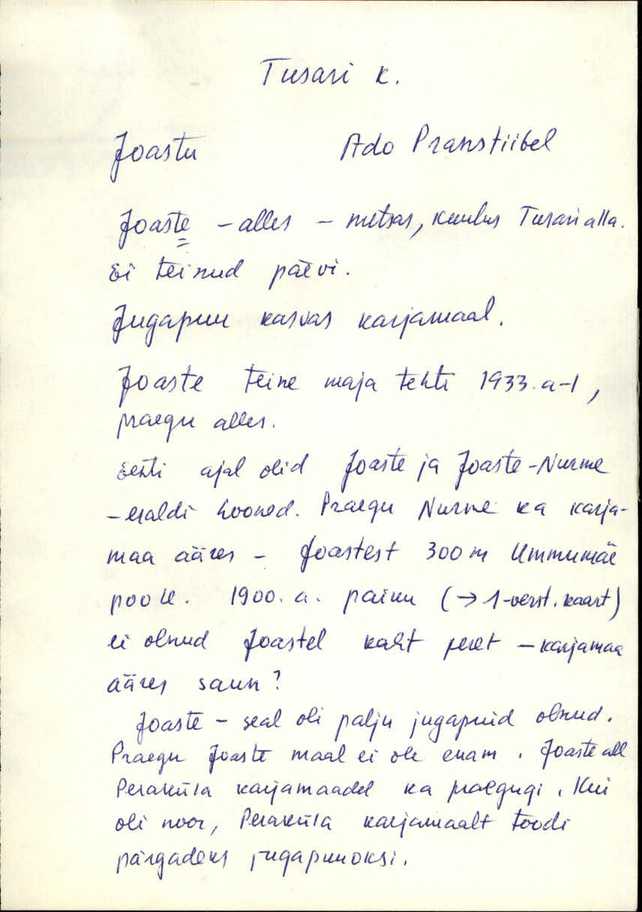 Tusari k.
Joastu Ado Pranstiibel
Joaste - alles - metsas, kuulus Tusari alla.
Ei teinud päevi.
Jugapuu kasvas karjamaal.
Joaste teine maja tehti 1933. a-l,
praegu alles.
Eesti ajal olid Joaste ja Joaste-Nurme
- eraldi hooned. Praegu Nurme ka karja-
maa ääres - Joastest 300 m Ummumäe
poole. 1900. a. paiku (→ 1-verst. kaart)
ei olnud Joastel kaht peret - karjamaa
ääres saun?
Joaste - seal oli palju jugapuid olnud.
Praegu Joaste maal ei ole enam. Joaste all
Peraküla karjamaadel ka praegugi. Kui
oli noor, Peraküla karjamaalt toodi
pärgadeks jugapuuoksi.